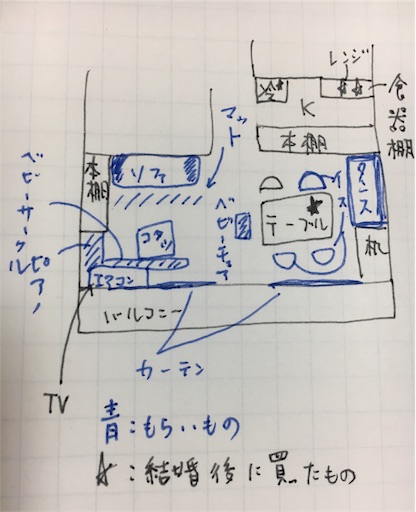 レンジ
食器棚
冷
K
マット
本棚
本棚
ソファ
タンス
イス
ベビーサークル
ベビーチェア
テーブル
コタツ
机
ピアノ
エアコン
バルコニー
カーテン
TV
青:もらいもの
☆:結婚後に買たもの